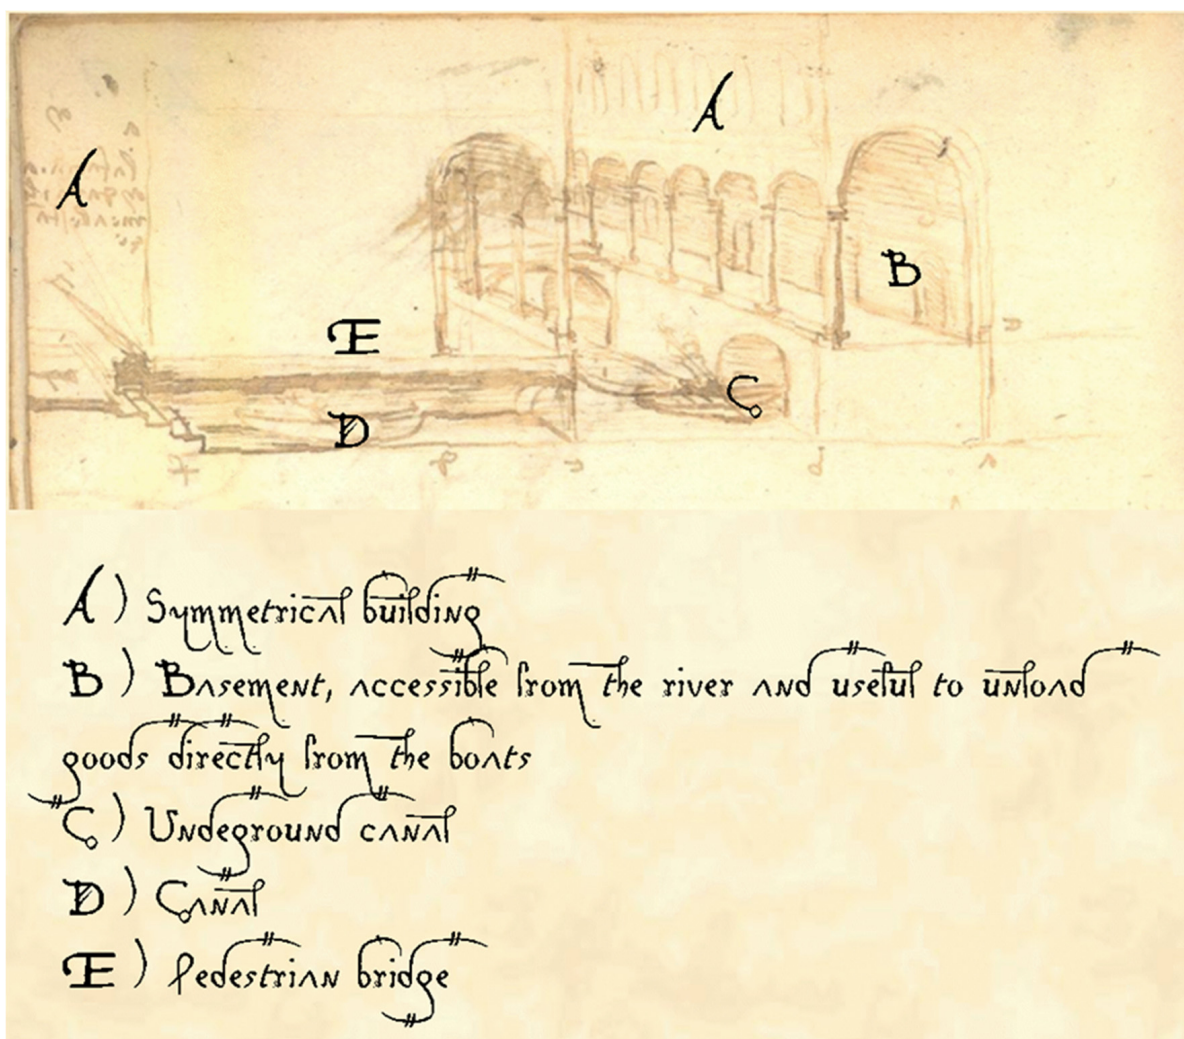 A
A
B
E
C
D
A) Symmetrical building
B) Basement, accessible from the river and useful to unload
goods directly from the boats
C) Undeground canal
D) Canal
E) Pedestrian bridge